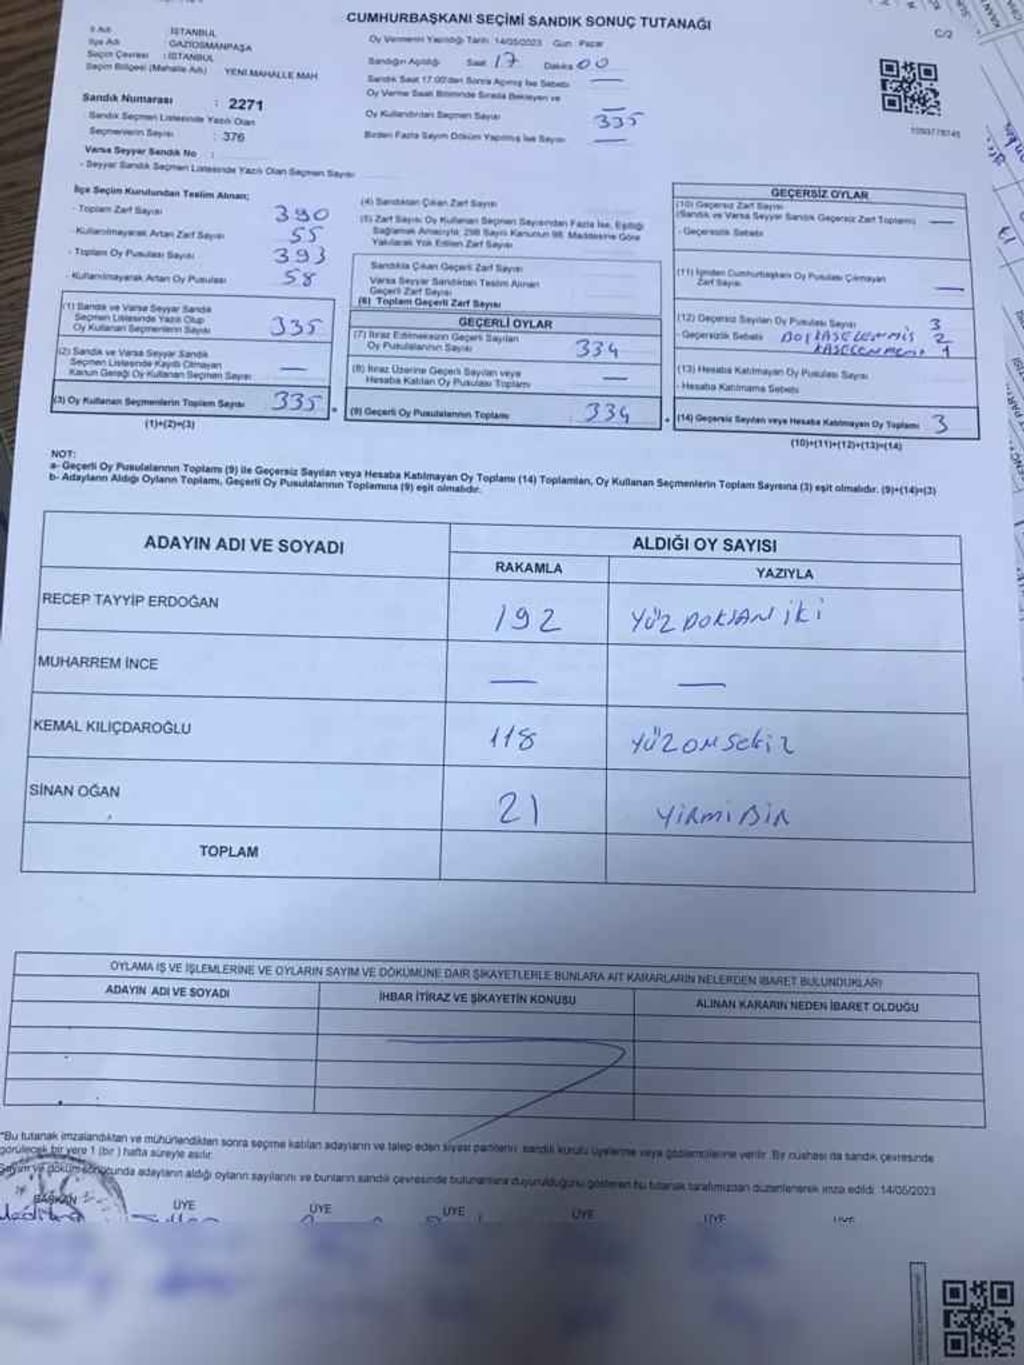 CUMHURBAŞKANI SEÇİMİ SANDIK SONUÇ TUTANAĞI
C/2
İl Adı : İSTANBUL
İlçe Adı : GAZİOSMANPAŞA
Seçim Çevresi : İSTANBUL
Seçim Bölgesi (Mahalle Adı) YENİ MAHALLE MAH
Sandık Numarası : 2271
Sandık Seçmen Listesinde Yazılı Olan
Seçmenlerin Sayısı : 376
Varsa Seyyar Sandık No :
- Seyyar Sandık Seçmen Listesinde Yazılı Olan Seçmen Sayısı
Oy Vermenin Yapıldığı Tarih: 14/05/2023 Gün : Pazar
Sandığın Açıldığı Saat 17 Dakika 00
Sandık Saat 17:00'den Sonra Açılmış İse Sebebi —
Oy Verme Saati Bitiminde Sırada Bekleyen ve
Oy Kullandırılan Seçmen Sayısı 335
Birden Fazla Sayım Döküm Yapılmış İse Sayısı —
İlçe Seçim Kurulundan Teslim Alınan;
- Toplam Zarf Sayısı 390
- Kullanılmayarak Artan Zarf Sayısı 55
- Toplam Oy Pusulası Sayısı 393
- Kullanılmayarak Artan Oy Pusulası 58
(1) Sandık ve Varsa Seyyar Sandık
Seçmen Listesinde Yazılı Olup
Oy Kullanan Seçmenlerin Sayısı 335
(2) Sandık ve Varsa Seyyar Sandık
Seçmen Listesinde Kayıtlı Olmayan
Kanun Gereği Oy Kullanan Seçmen Sayısı —
(3) Oy Kullanan Seçmenlerin Toplam Sayısı 335
(1)+(2)=(3)
(4) Sandıktan Çıkan Zarf Sayısı
(5) Zarf Sayısı Oy Kullanan Seçmen Sayısından Fazla İse, Eşitliği
Sağlamak Amacıyla; 298 Sayılı Kanunun 98. Maddesine Göre
Yakılarak Yok Edilen Zarf Sayısı
Sandıkta Çıkan Geçerli Zarf Sayısı
Varsa Seyyar Sandıktan Teslim Alınan
Geçerli Zarf Sayısı
(6) Toplam Geçerli Zarf Sayısı
GEÇERLİ OYLAR
(7) İtiraz Edilmeksizin Geçerli Sayılan
Oy Pusulalarının Sayısı 334
(8) İtiraz Üzerine Geçerli Sayılan veya
Hesaba Katılan Oy Pusulası Toplamı —
(9) Geçerli Oy Pusulalarının Toplamı 334
GEÇERSİZ OYLAR
(10) Geçersiz Zarf Sayısı
(Sandık ve Varsa Seyyar Sandık Geçersiz Zarf Toplamı) —
- Geçersizlik Sebebi
(11) İçinden Cumhurbaşkanı Oy Pusulası Çıkmayan
Zarf Sayısı —
(12) Geçersiz Sayılan Oy Pusulası Sayısı 3
- Geçersizlik Sebebi 2
1
(13) Hesaba Katılmayan Oy Pusulası Sayısı
- Hesaba Katılmama Sebebi
(14) Geçersiz Sayılan veya Hesaba Katılmayan Oy Toplamı 3
(10)+(11)+(12)+(13)=(14)
NOT:
a- Geçerli Oy Pusulalarının Toplamı (9) ile Geçersiz Sayılan veya Hesaba Katılmayan Oy Toplamı (14) Toplamları, Oy Kullanan Seçmenlerin Toplam Sayısına (3) eşit olmalıdır. (9)+(14)=(3)
b- Adayların Aldığı Oyların Toplamı, Geçerli Oy Pusulalarının Toplamına (9) eşit olmalıdır.
ADAYIN ADI VE SOYADI
ALDIĞI OY SAYISI
RAKAMLA YAZIYLA
RECEP TAYYİP ERDOĞAN 192 YÜZ DOKSAN İKİ
MUHARREM İNCE — —
KEMAL KILIÇDAROĞLU 118 YÜZ ON SEKİZ
SİNAN OĞAN 21 YİRMİ BİR
TOPLAM
OYLAMA İŞ VE İŞLEMLERİNE VE OYLARIN SAYIM VE DÖKÜMÜNE DAİR ŞİKAYETLERLE BUNLARA AİT KARARLARIN NELERDEN İBARET BULUNDUKLARI
ADAYIN ADI VE SOYADI İHBAR İTİRAZ VE ŞİKAYETİN KONUSU ALINAN KARARIN NEDEN İBARET OLDUĞU
*Bu tutanak imzalandıktan ve mühürlendikten sonra seçime katılan adayların ve talep eden siyasi partilerin sandık kurulu üyelerine veya gözlemcilerine verilir. Bir nüshası da sandık çevresinde
görülecek bir yere 1 (bir) hafta süreyle asılır.
Sayım ve döküm sonucunda adayların aldığı oyların sayılarını ve bunların sandık çevresinde bulunanlara duyurulduğunu gösteren bu tutanak tarafımızdan düzenlenerek imza edildi. 14/05/2023
BAŞKAN ÜYE ÜYE ÜYE ÜYE ÜYE ÜYE